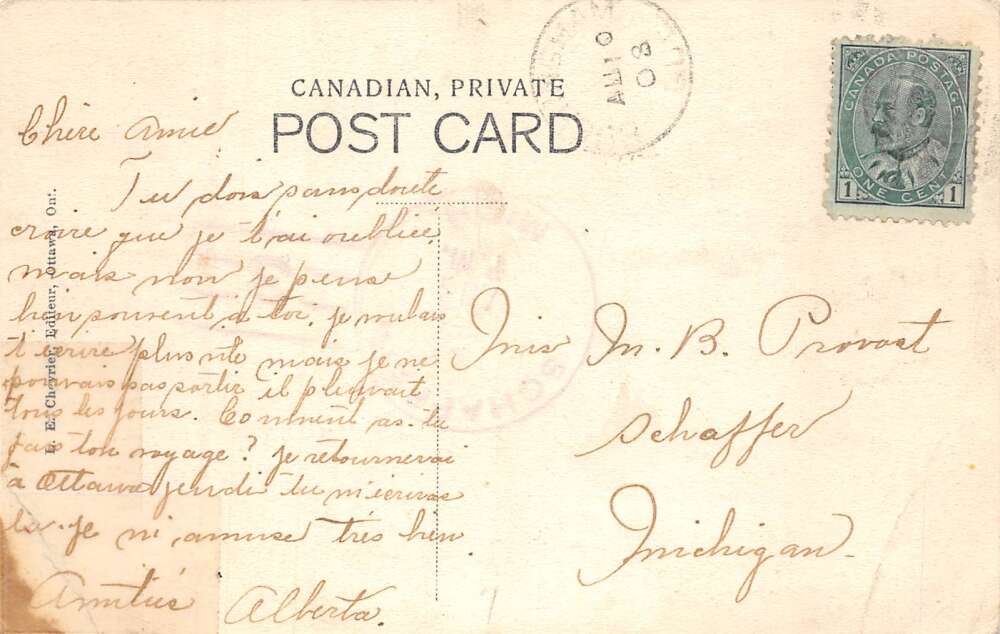 CANADIAN, PRIVATE
POST CARD
AU 10
08
CANADA POSTAGE
1 ONE CENT 1
L. E. Chevrier, Editeur, Ottawa, Ont.
Chère Amie
Tu dois sans doute
croire que je t'ai oubliée
mais non je pense
bien souvent a toi. je voulais
t'écrire plus vite mais je ne
pouvais pas sortir il pleuvait
tous les jours. Comment as-tu
fais ton voyage? Je retournerai
à Ottawa jeudi tu m'ecriras
la. Je m'amuse très bien
Amitiés Alberta.
Miss M. B. Provost
Schaffer
Michigan
SCHAFFER